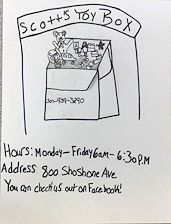 Scott's Toy Box
Hours: Monday-Friday 6am-6:30P.M
Address: 800 Shoshone Ave
You can check us out on Facebook!